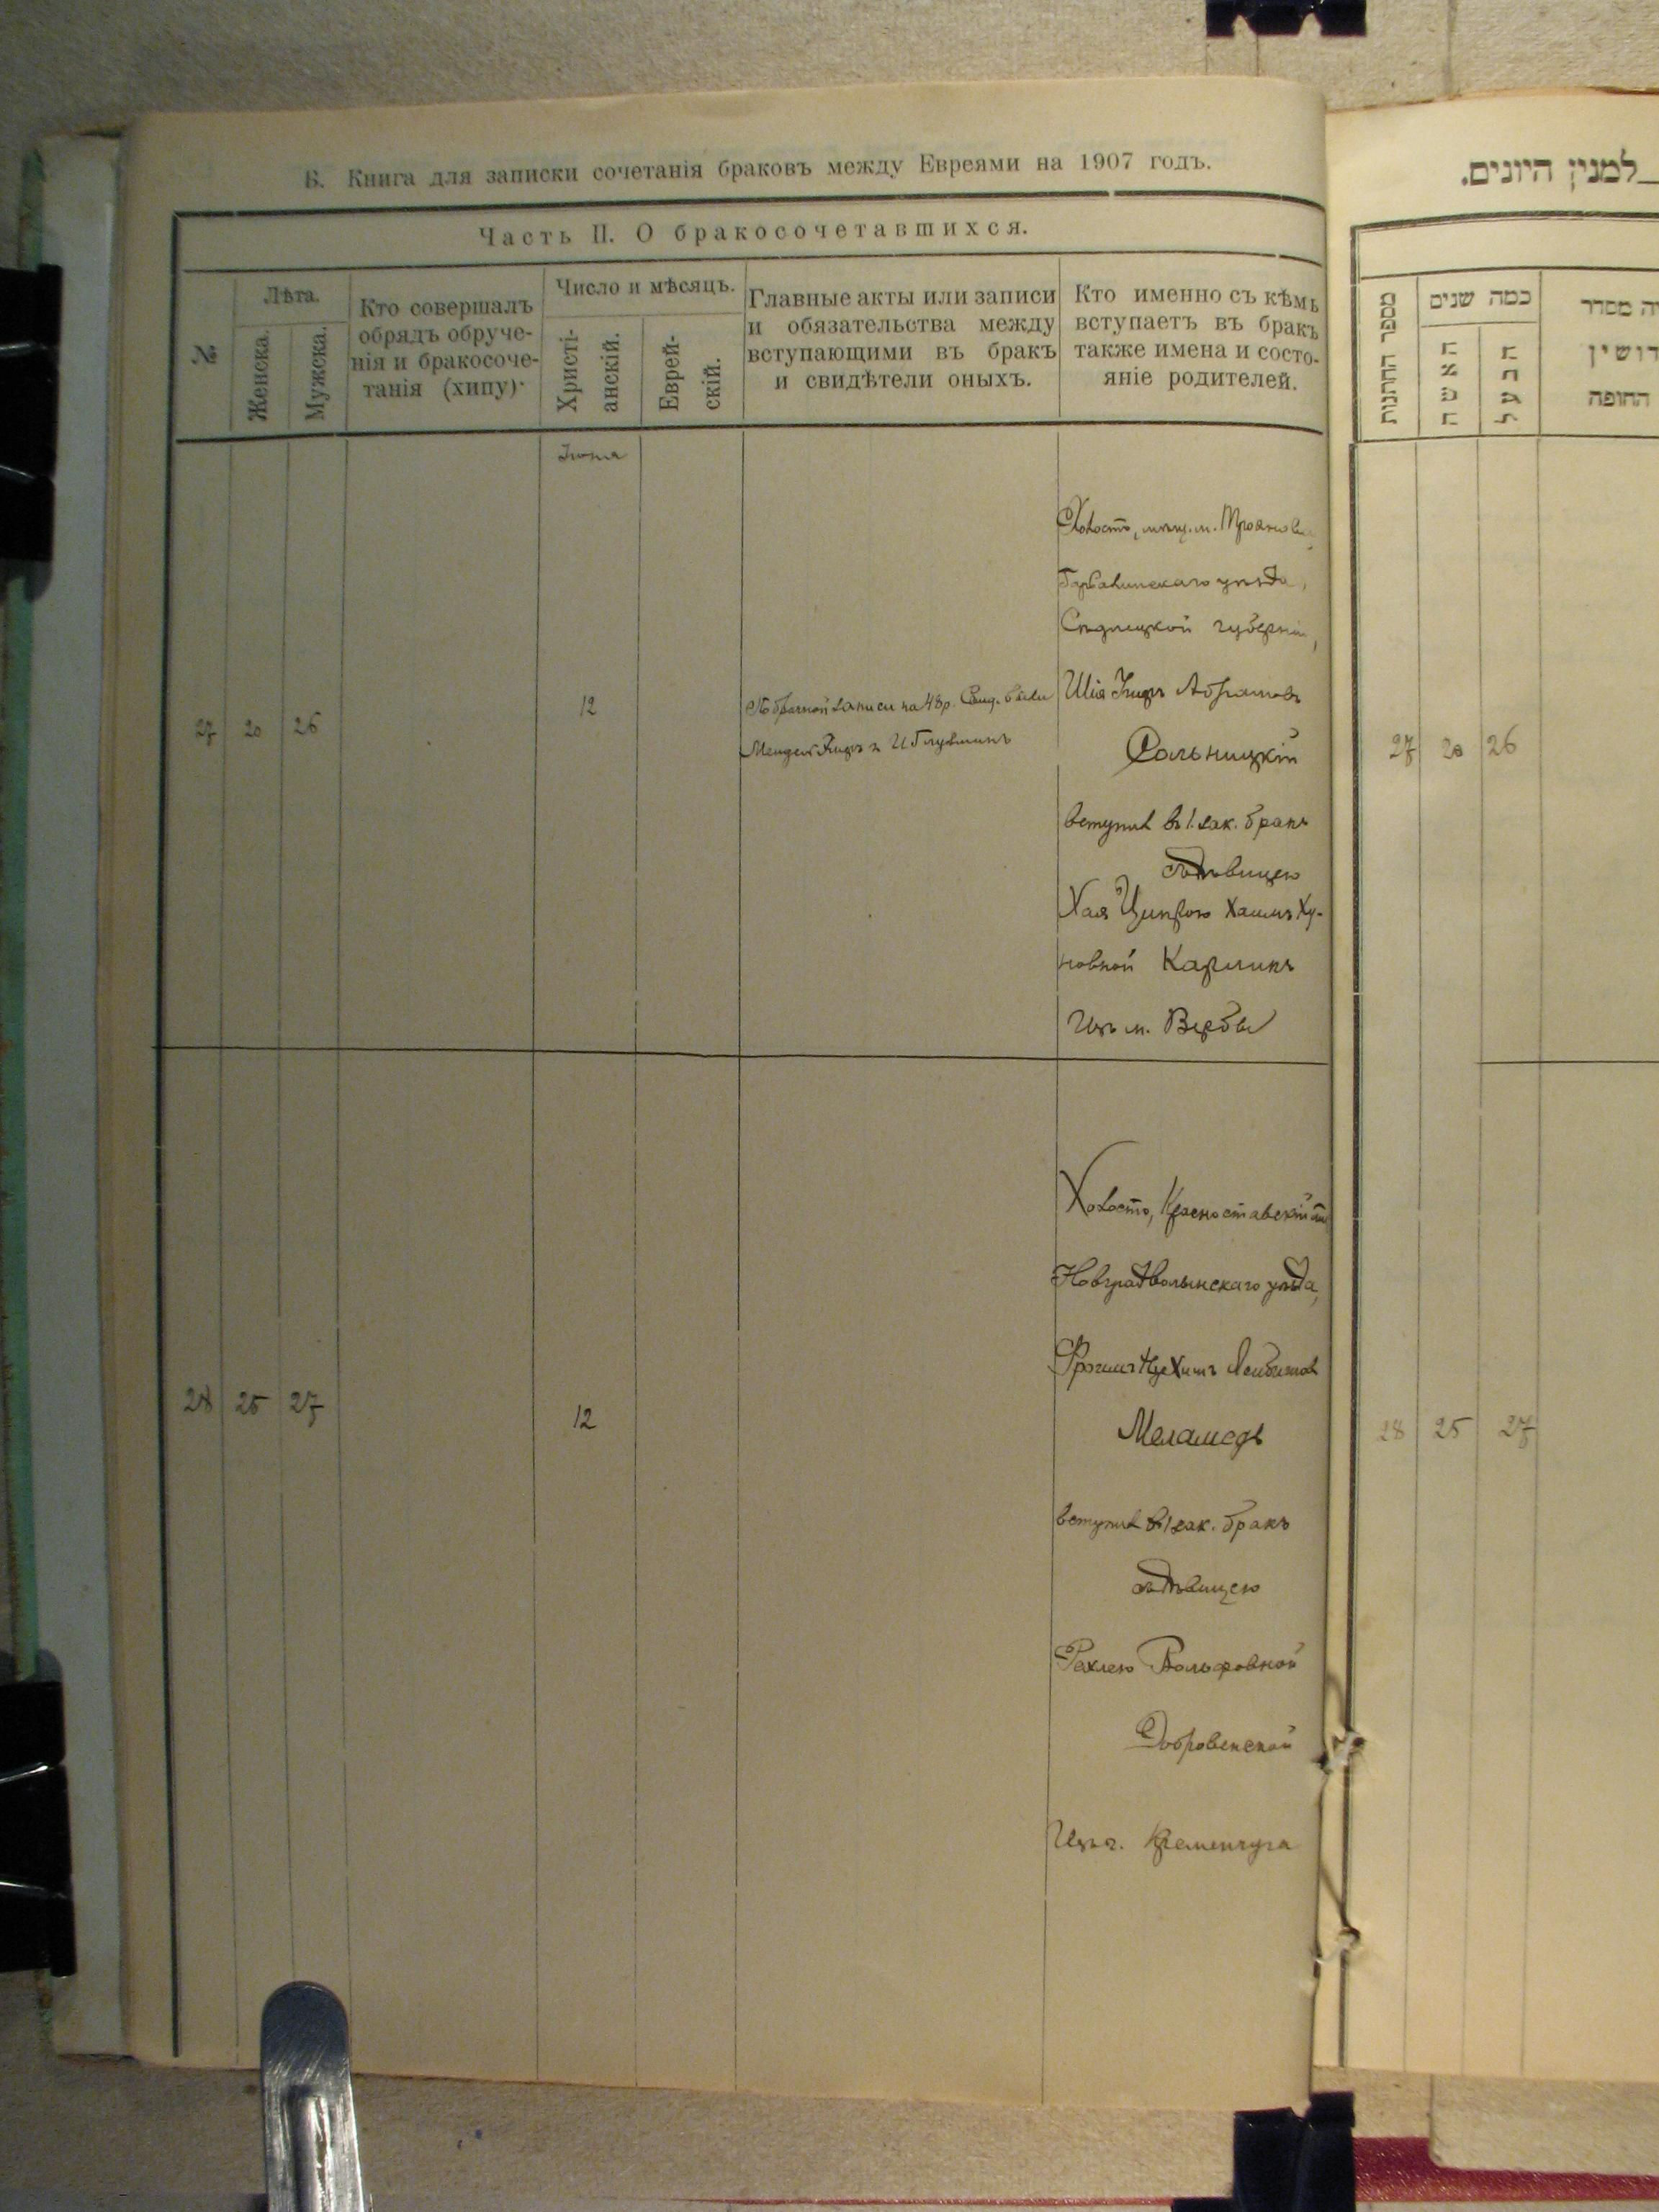 Б. Книга для записки сочетанія браковъ между Евреями на 1907 годъ.
Часть II. О бракосочетавшихся.
№
Лѣта.
Женска.
Мужска.
Кто совершалъ
обрядъ обруче-
нія и бракосоче-
танія (хипу)
Число и мѣсяцъ.
Христі-
анскій.
Еврей-
скій.
Главные акты или записи
и обязательства между
вступающими въ бракъ
и свидѣтели оныхъ.
Кто именно съ кѣмъ
вступаетъ въ бракъ
также имена и состо-
яніе родителей.
27 20 26
12
По брачной записи на 48 р. Свид. были
Холостъ, мѣщ. м.
уѣзда,
губерніи,
Шія Абрамовъ
Сольницкій
вступил въ 1. зак. бракъ
съ дѣвицею
Хая Ципрою Хаимъ Ху-
новной Карликъ
Изъ м. Вербы
28 25 27
12
Холостъ, Красноставскій
Новградволынскаго уѣзда,
Меламедъ
вступил въ 1 зак. бракъ
съ дѣвицею
Рахлею Вольфовной
Добровенской
Изъ г. Кременчуга
למנין היונים.
מספר החתונות
כמה שנים
האשה
הבעל
מסדר
החופה
27 20 26
28 25 27